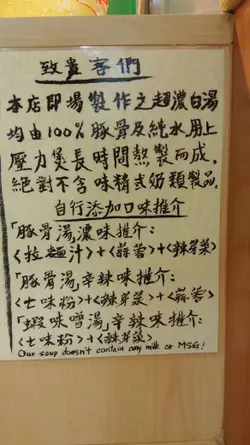 致貴客們
本店即場製作之超濃白湯
均由100%豚骨及純水,用上
壓力煲長時間熬製而成.
絕對不含味精或奶類製品.
自行添加口味推介
「豚骨湯」濃味推介:
<拉麵汁>+<蒜蓉>+<辣芽菜>
「豚骨湯」辛辣味推介:
<七味粉>+<辣芽菜>+<蒜蓉>
「蝦味噌湯」辛辣味推介:
<七味粉>+<辣芽菜>
Our soup doesn't contain any milk or MSG!